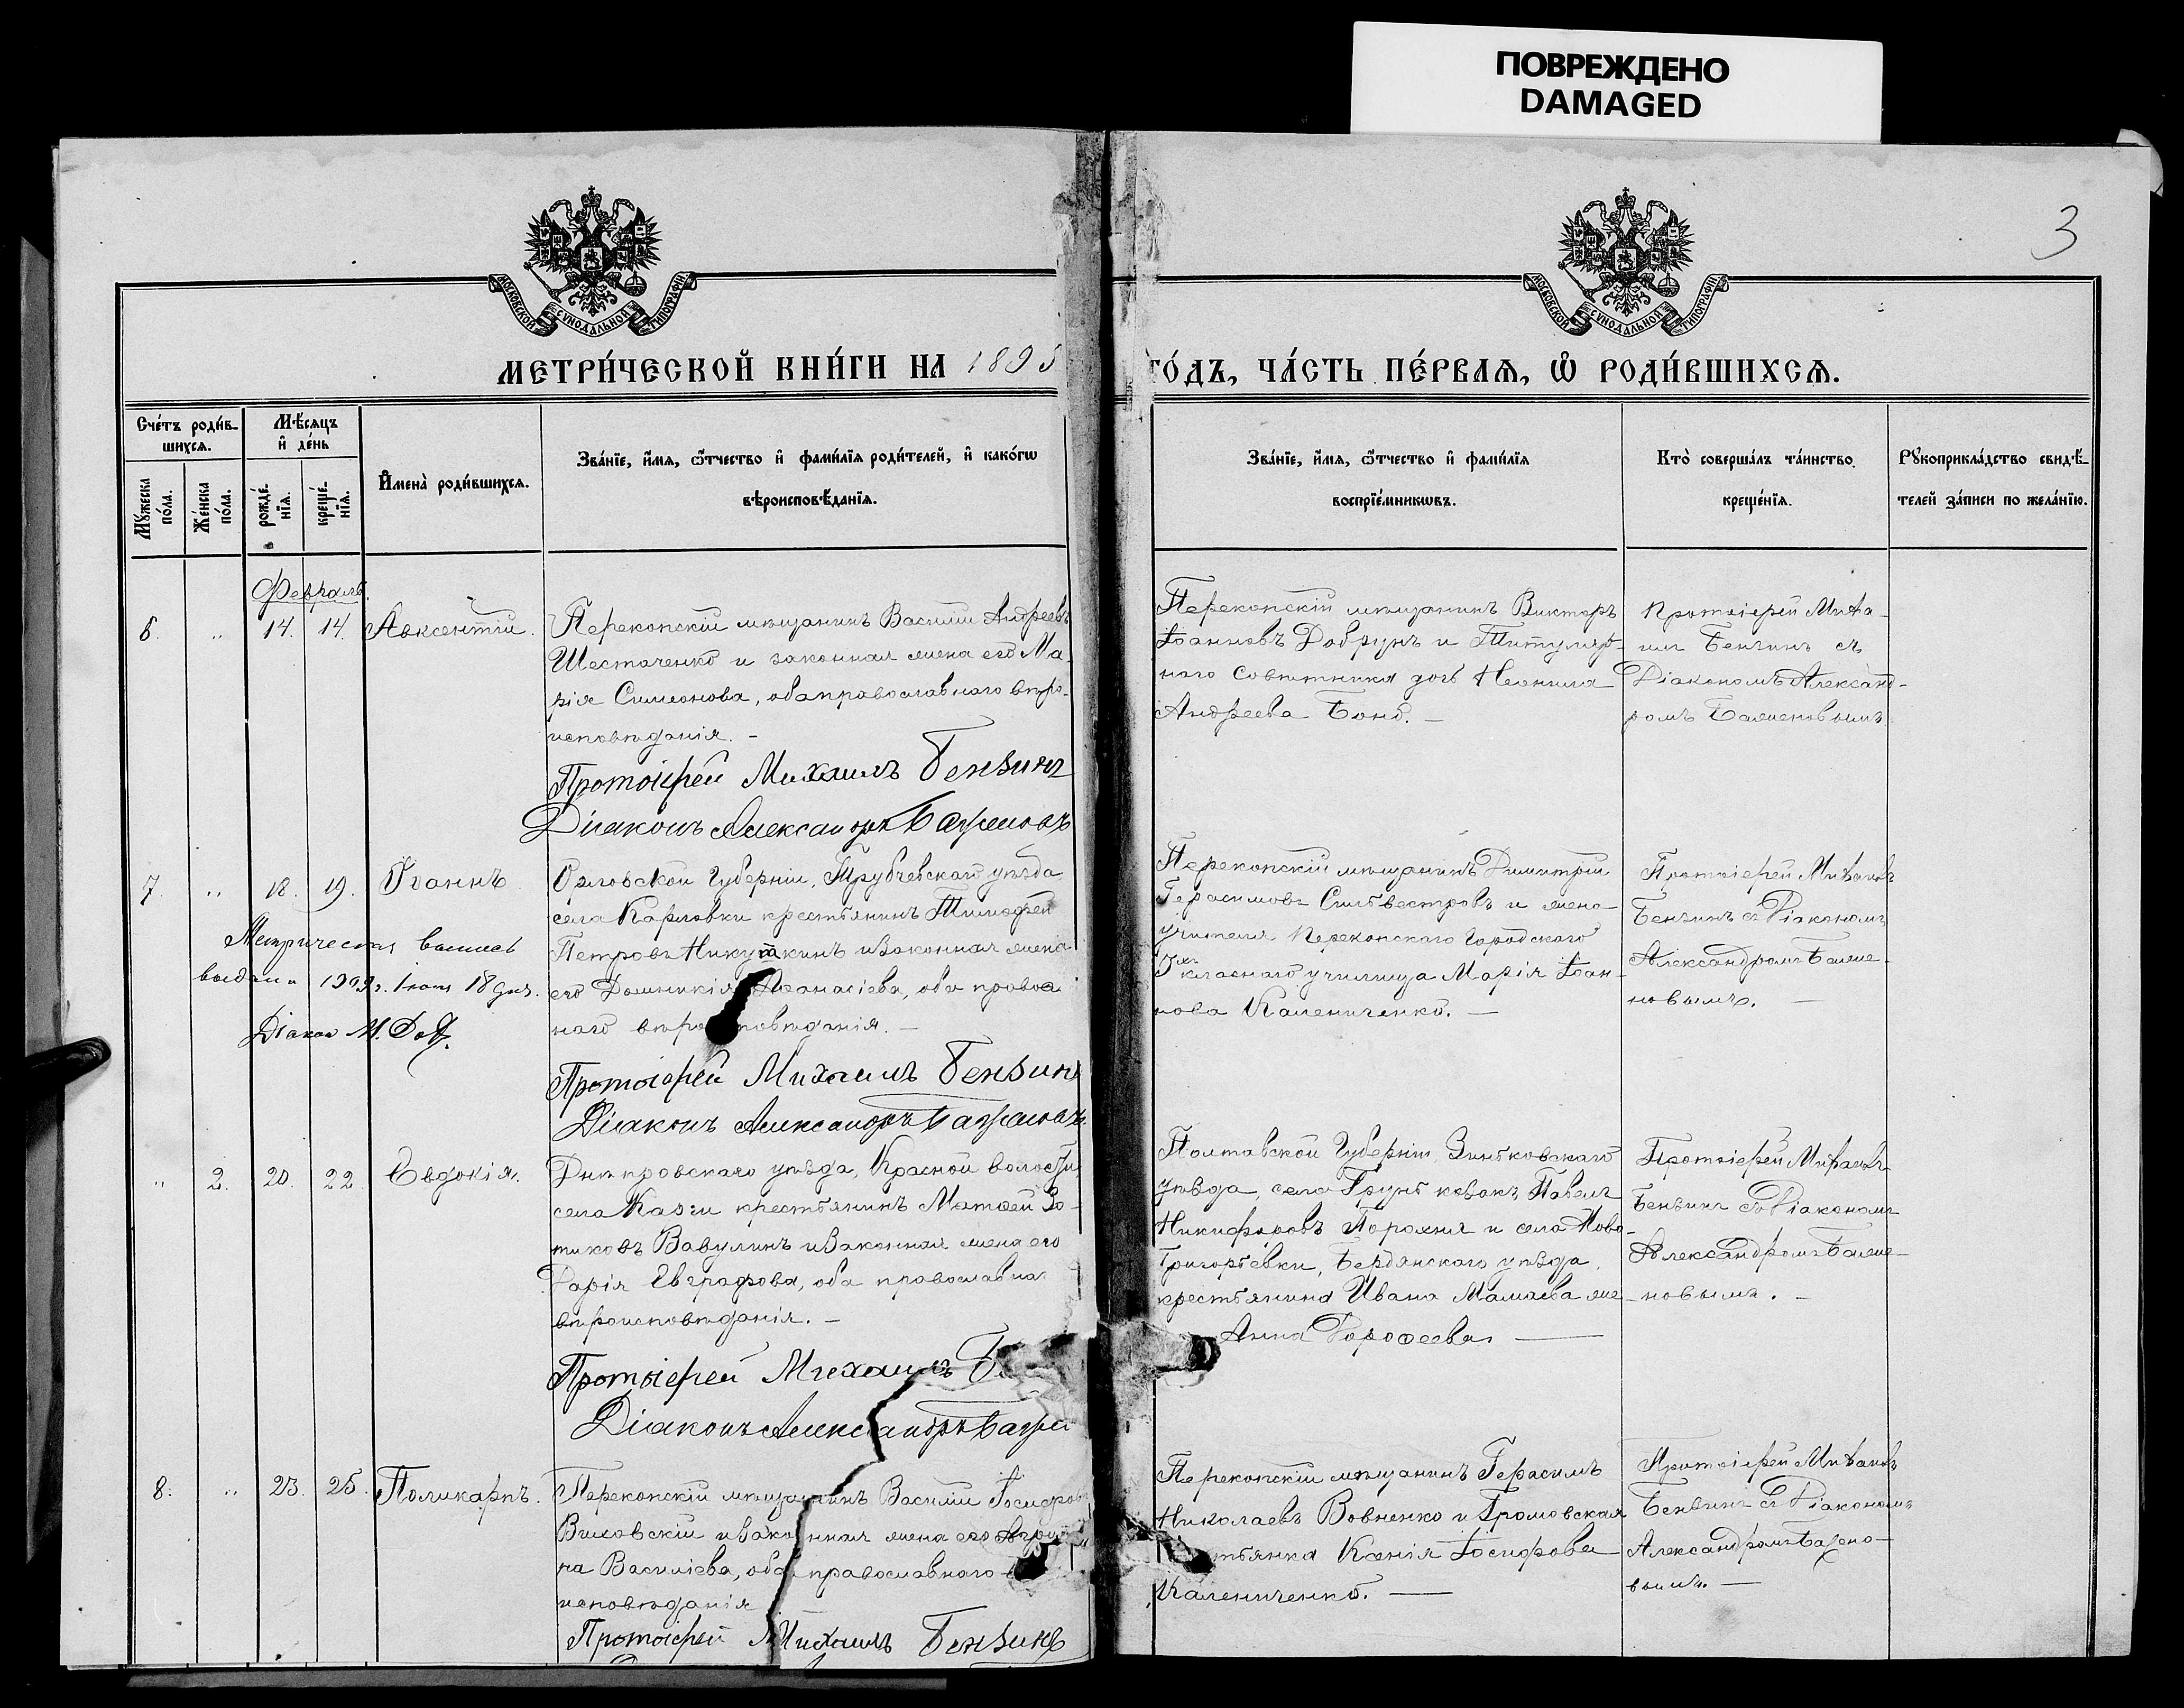 ПОВРЕЖДЕНО
DAMAGED
3
МОСКОВСКОЙ СѴНОДАЛЬНОЙ ТИПОГРАФІИ
МОСКОВСКОЙ СѴНОДАЛЬНОЙ ТИПОГРАФІИ
МЕТРИ́ЧЕСКОЙ КНИ́ГИ НА 1895
ГО́ДЪ, ЧА́СТЬ ПЕ́РВАЯ, Ѡ РОДИ́ВШИХСЯ.
Сче́тъ роди́в-
шихся.
Мѣ́сяцъ
и҆ де́нь
Мꙋ́жеска
по́ла.
Же́нска
по́ла.
рожде́-
нїя.
креще́-
нїя.
И҆мена̀ роди́вшихся.
Зва́нїе, и҆́мя, ѻ҆́тчество и҆ фами́лїя роди́телей, и҆ како́гѡ
вѣроисповѣ́данїя.
Зва́нїе, и҆́мя, ѻ҆́тчество и҆ фами́лїя
воспрїе́мникѡвъ.
Кто̀ соверша́лъ та́инство
креще́нїя.
Рꙋкоприкла́дство свидѣ́-
телей за́писи по жела́нїю.
Февраль.
6. „ 14. 14. Авксентій.
Перекопскій мѣщанинъ Василій Андреевъ
Шестаченко и законная жена его Ма-
рія Симеонова, оба православнаго вѣро-
исповѣданія. –
Протоіерей Михаилъ Бензинъ
Діаконъ Александръ Баженовъ
Перекопскій мѣщанинъ Викторъ
Іоанновъ Добрунъ и Титуляр-
наго Совѣтника дочь Неонила
Андреева Бонд. –
Протоіерей Миха-
илъ Бензинъ съ
Діакономъ Александ-
ромъ Баженовымъ
7. „ 18. 19. Іоаннъ
Метрическая выпись
выдана 1909 г. 18 дня.
Діакон М.
Орловской Губерніи, Трубчевскаго уѣзда
села Карловки крестьянинъ Тимофей
Петровъ Никуткинъ и законная жена
его Домникія Аѳанасіева, оба правос
наго вѣроисповѣданія. –
Протоіерей Михаилъ Бензинъ
Діаконъ Александръ Баженовъ
Перекопскій мѣщанинъ Димитрій
Герасимовъ Сильвестровъ и жена
учителя Перекопскаго Городского
класнаго училища Марія Іоан-
нова Калениченко. –
Протоіерей Михаилъ
Бензинъ съ Діакономъ
Александромъ Баже-
новымъ. –
„ 2. 20. 22. Евдокія.
Днѣпровскаго уѣзда, Красной волости,
села крестьянинъ Матѳей Зо-
тиковъ Вавулинъ и законная жена его
Дарія Евграфова, оба православна
вѣроисповѣданія. –
Протоіерей Михаилъ Б
Діаконъ Александръ Баже
Полтавской Губерніи, Зиньковскаго
уѣзда, села Грунь козакъ Павелъ
Никифоровъ Порохня и села Ново-
Григорьевки, Бердянскаго уѣзда,
крестьянина Ивана Мамаева же
Анна Дорофеева. –
Протоіерей Михаилъ
Бензинъ съ Діакономъ
Александромъ Баже-
новымъ. –
8. „ 23. 25. Поликарпъ.
Перекопскій мѣщанинъ Василій Іосифовъ
Вишовскій и законная жена его Агрип
на Василіева, оба православнаго
исповѣданія
Протоіерей Михаилъ Бензинъ
Перекопскій мѣщанинъ Герасимъ
Николаевъ Вовненко и Громовская
тьянка Ксенія Іосифова
Калениченко. –
Протоіерей Михаилъ
Бензинъ съ Діакономъ
Александромъ Бажено-
вымъ. –